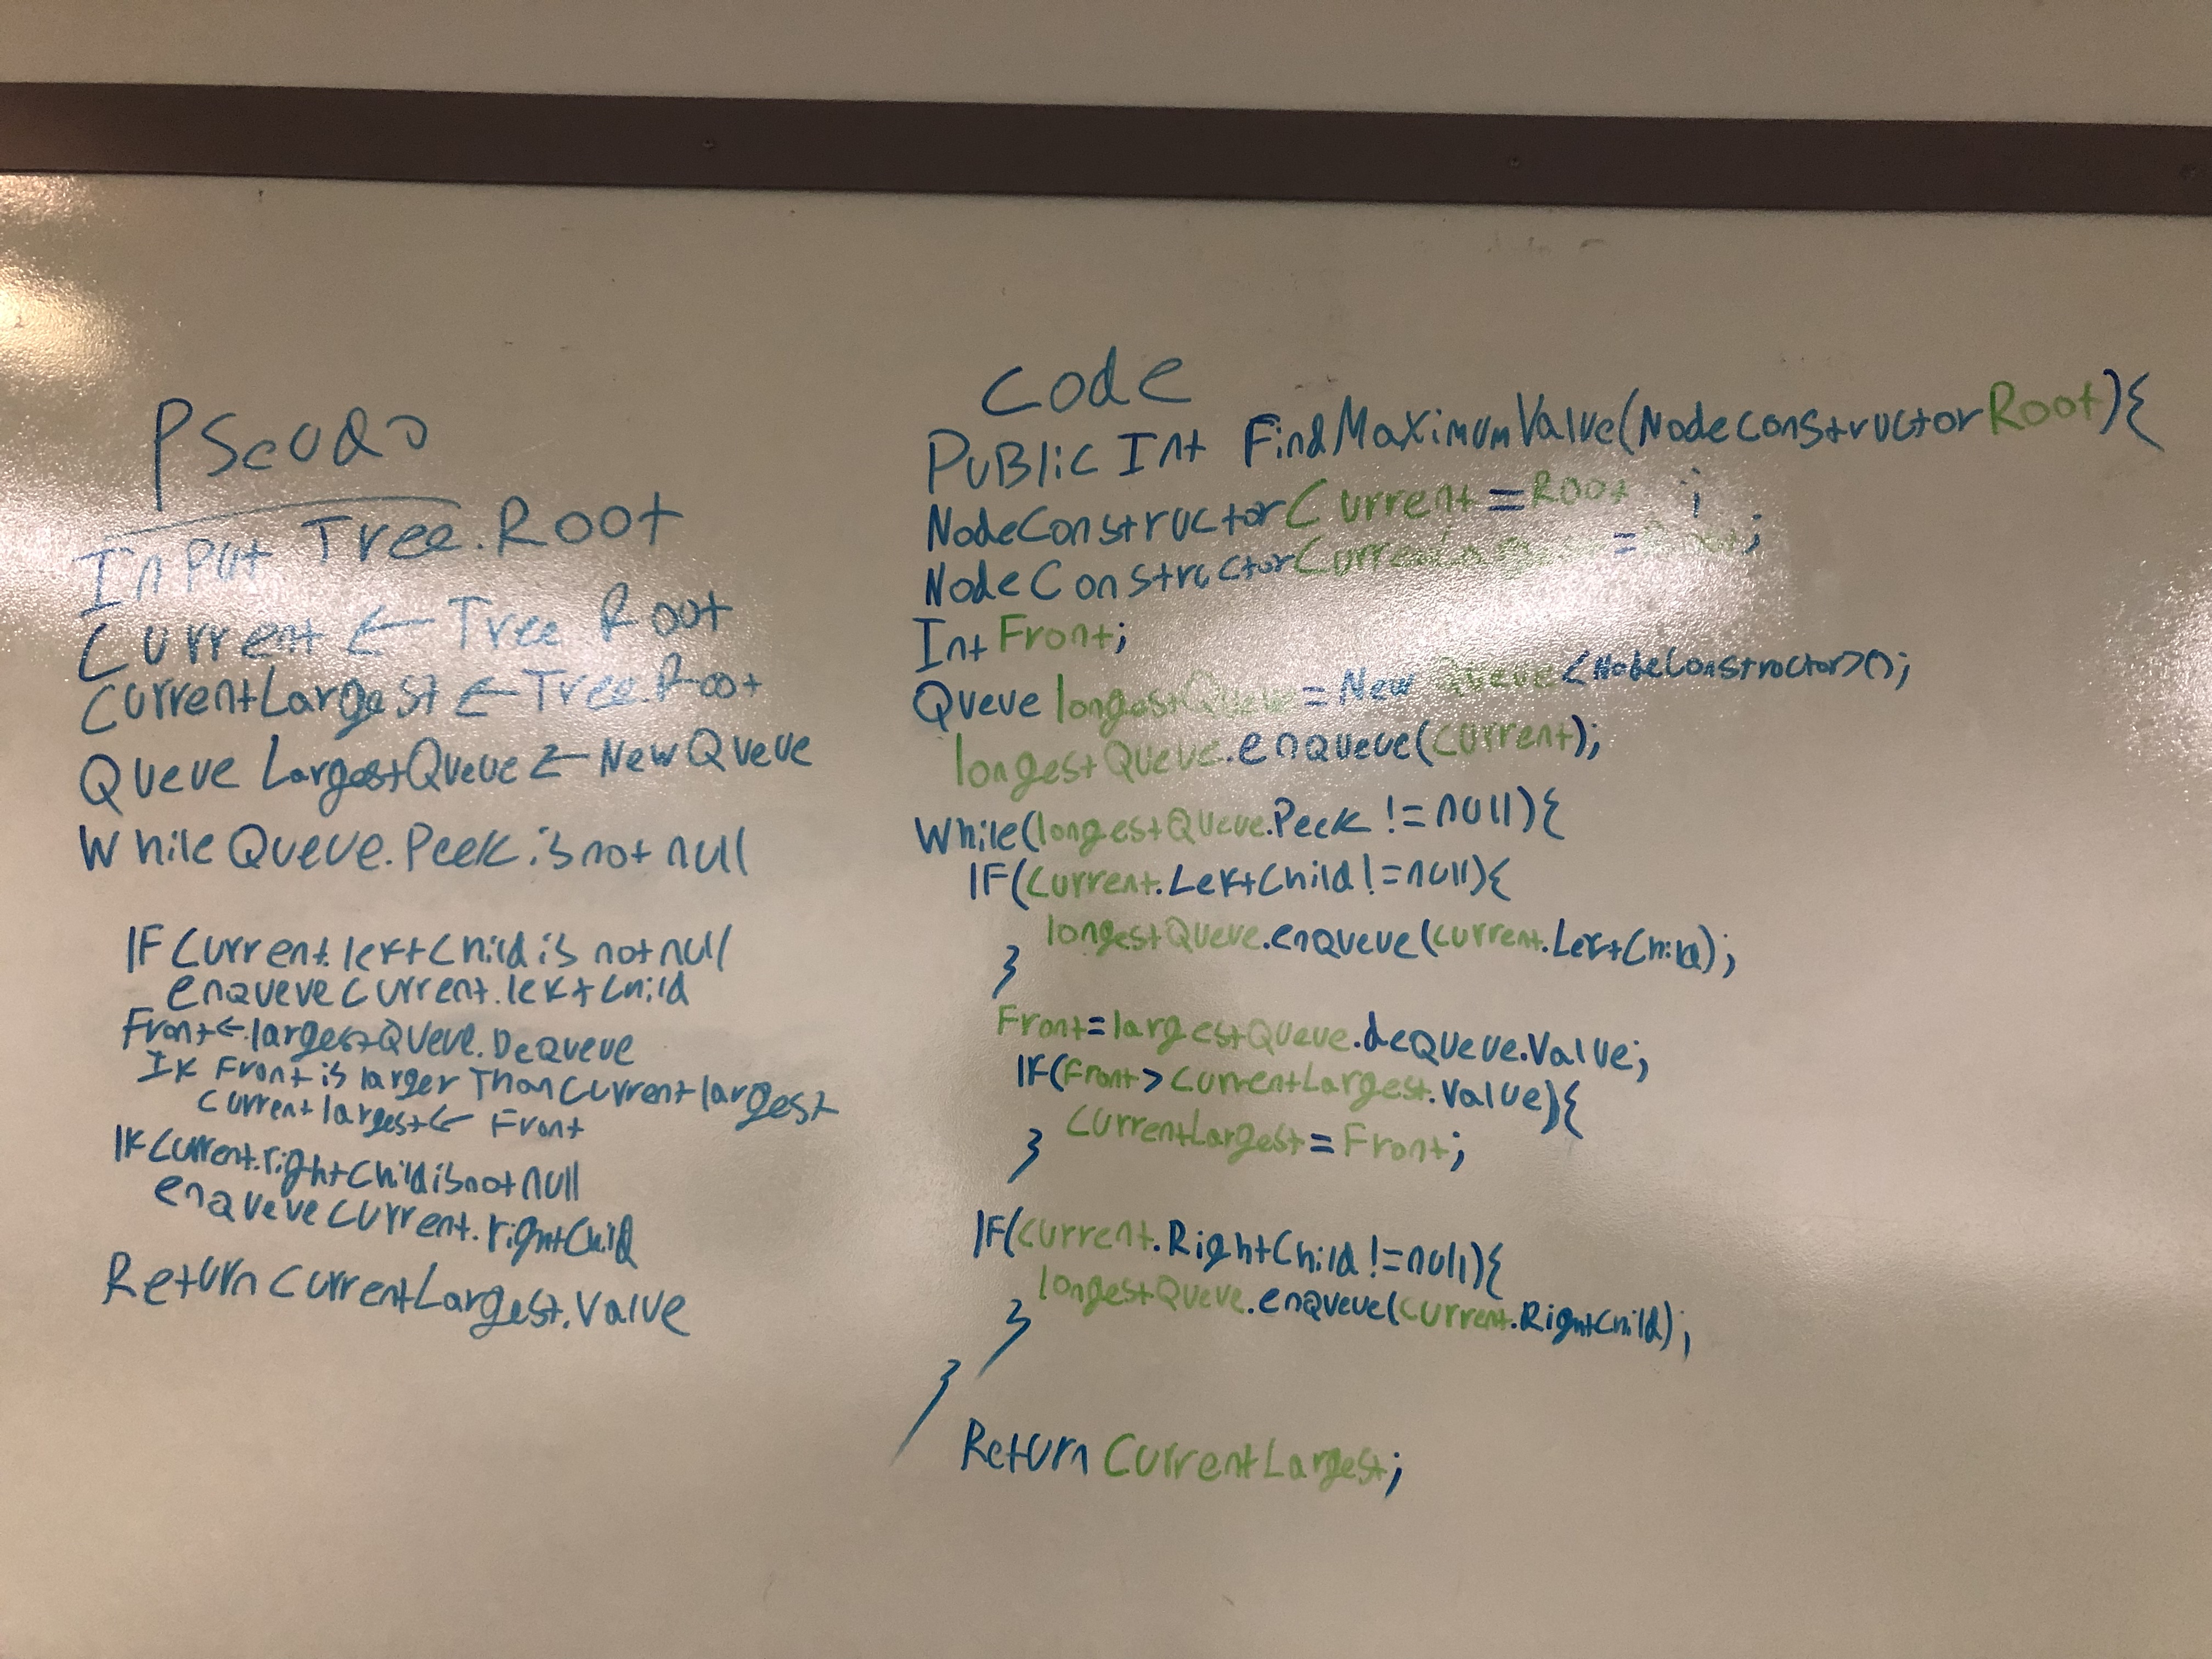 Pseudo
Input Tree.Root
Current ← Tree.Root
CurrentLargest ← Tree.Root
Queue LargestQueue ← New Queue
While Queue.Peek is not null
IF Current.leftChild is not null
enqueue current.leftChild
Front ← largestQueue.Dequeue
If Front is larger Than Currentlargest
currentlargest ← Front
If Current.rightChild is not null
enqueue current.rightChild
Return CurrentLargest.Value
Code
Public Int FindMaximumValue(NodeConstructor Root){
NodeConstructor Current = Root ;
NodeConstructor CurrentLargest = Root;
Int Front;
Queue longestQueue = New Queue <NodeConstructor>();
longestQueue.enqueue(current);
While(longestQueue.Peek != null){
IF(Current.LeftChild != null){
longestQueue.enqueue(current.LeftChild);
}
Front = largestQueue.deQueue.Value;
If(Front > CurrentLargest.Value){
CurrentLargest = Front;
}
IF(current.RightChild != null){
longestQueue.enqueue(current.RightChild);
}
}
Return CurrentLargest;